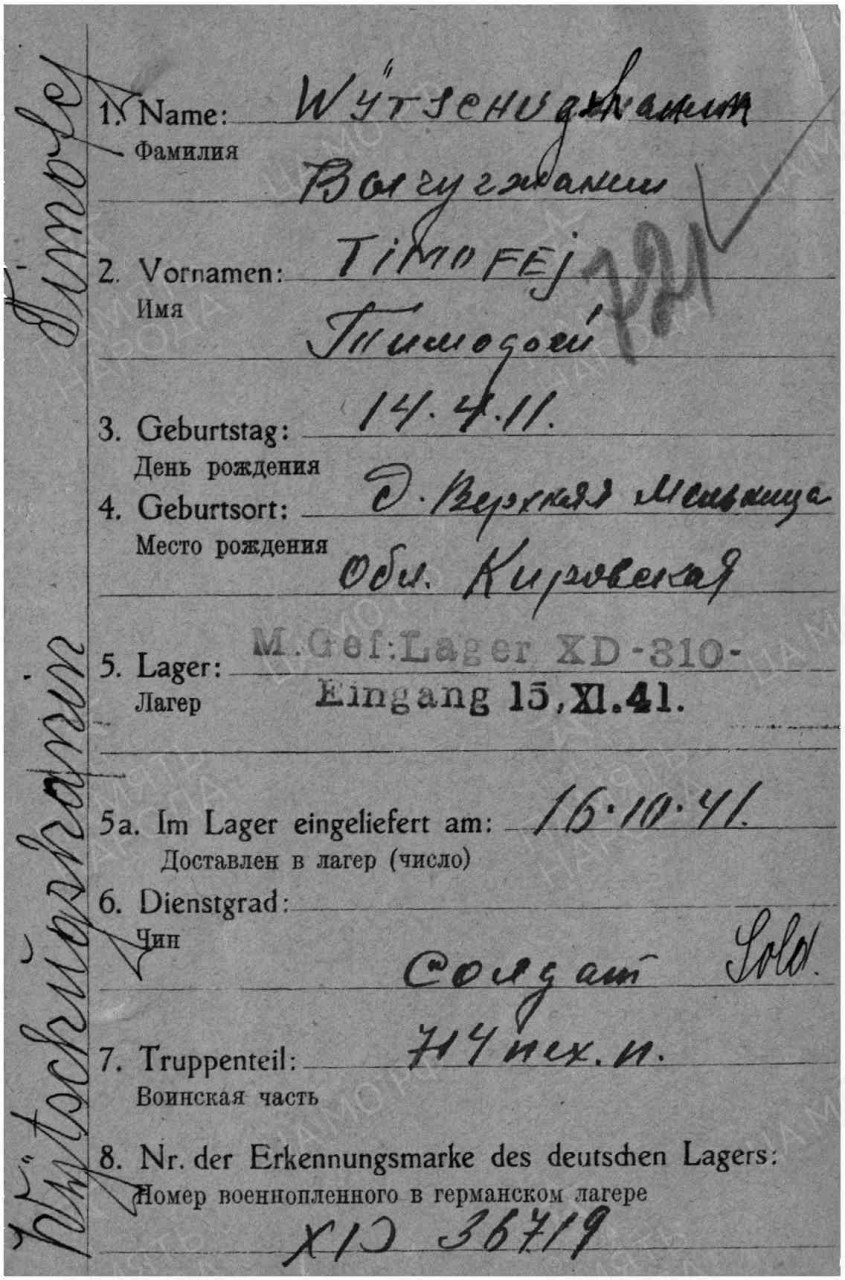 1. Name: Wÿtschugshanin
Фамилия
Вычугжанин
2. Vornamen: TIMOFEj
Имя
Тимофей
721
3. Geburtstag: 14.4.11.
День рождения
4. Geburtsort: д. Верхняя Мельница
Место рождения
Обл. Кировская
5. Lager: M.Gef:Lager XD-310-
Лагер Eingang 15.XI.41.
5a. Im Lager eingeliefert am: 16.10.41.
Доставлен в лагер (число)
6. Dienstgrad:
Чин
Солдат Sold.
7. Truppenteil: 714 пех. п.
Воинская часть
8. Nr. der Erkennungsmarke des deutschen Lagers:
Номер военнопленного в германском лагере
XD 36719
Wÿtschŭgshanin Timofej